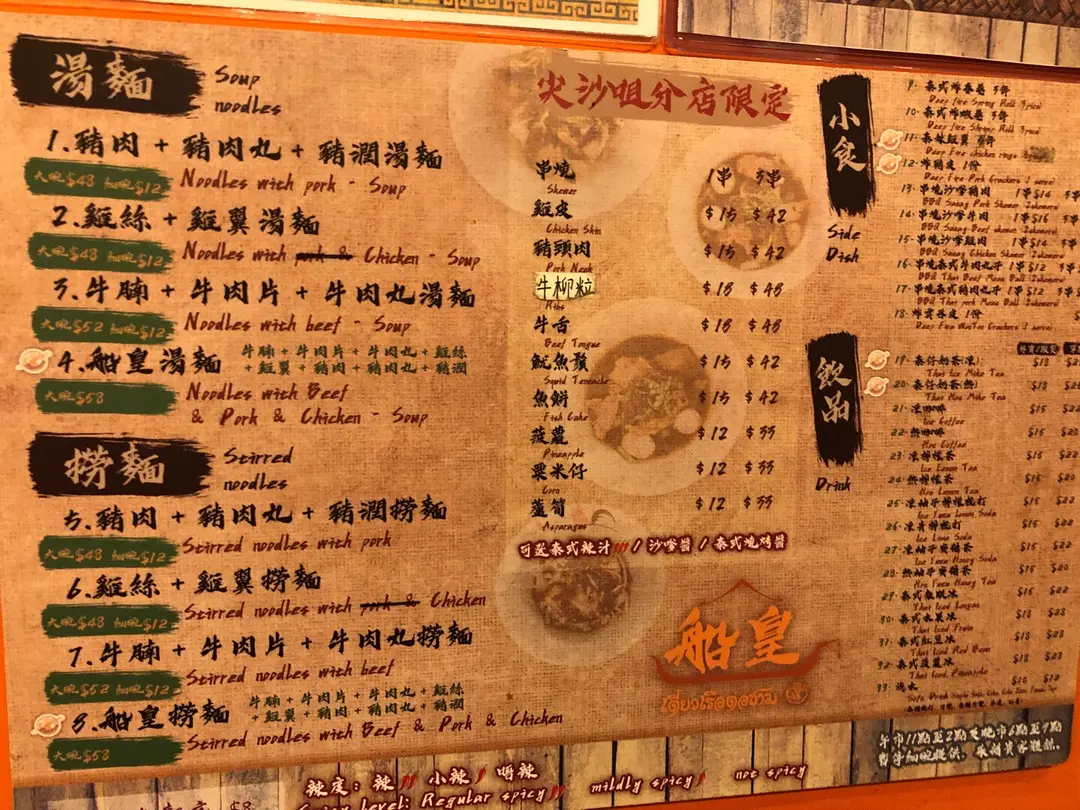 湯麵
Soup
noodles
1.豬肉 + 豬肉丸 + 豬潤湯麵
大碗$48 細碗$12
Noodles with pork - Soup
2.雞絲 + 雞翼湯麵
大碗$48 細碗$12
Noodles with pork & Chicken - Soup
3.牛腩 + 牛肉片 + 牛肉丸湯麵
大碗$52 細碗$12
Noodles with beef - Soup
4.船皇湯麵
牛腩 + 牛肉片 + 牛肉丸 + 雞絲
+ 雞翼 + 豬肉 + 豬肉丸 + 豬潤
大碗$58
Noodles with Beef
& Pork & Chicken - Soup
撈麵
Stirred
noodles
5.豬肉 + 豬肉丸 + 豬潤撈麵
大碗$48 細碗$12
Stirred noodles with pork
6.雞絲 + 雞翼撈麵
大碗$48 細碗$12
Stirred noodles with pork & Chicken
7.牛腩 + 牛肉片 + 牛肉丸撈麵
大碗$52 細碗$12
Stirred noodles with beef
8.船皇撈麵
牛腩 + 牛肉片 + 牛肉丸 + 雞絲
+ 雞翼 + 豬肉 + 豬肉丸 + 豬潤
大碗$58
Stirred noodles with Beef & Pork & Chicken
尖沙咀分店限定
串燒 1串 3串
Skewer
雞皮 $15 $42
Chicken Skin
豬頸肉 $15 $42
Pork Neck
牛柳粒 $18 $48
Ribs
牛舌 $18 $48
Beef Tongue
魷魚鬚 $15 $42
Squid Tentacle
魚餅 $15 $42
Fish Cake
菠蘿 $12 $33
Pineapple
粟米仔 $12 $33
Corn
蘆筍 $12 $33
Asparagus
可選泰式辣汁 / 沙嗲醬 / 泰式燒烤醬
船皇
小食
Side
Dish
9. 泰式炸春卷 3件
Deep Fire Spring Roll
10. 泰式炸蝦卷 3件
Deep Fire Shrimp Roll
11. 泰辣雞翼
Deep Fire chicken rings
12. 炸豬皮 1份
Deep Fire Pork Crackers
13. 串燒沙嗲豬肉 1串$14
BBQ Saury Pork Skewer
14. 串燒沙嗲牛肉 1串$16
BBQ Saury Beef Skewer
15. 串燒沙嗲雞肉 1串$14
BBQ Saury Chicken Skewer
16. 串燒泰式牛肉丸子 1串$12
BBQ Thai Beef Meat Ball
17. 串燒泰式豬肉丸子 1串$12
BBQ Thai pork Meat Ball
18. 炸雲吞皮 1份
Deep Fire WanTan Crackers
飲品
Drink
19. 泰仔奶茶(凍) $18
Thai Ice Milk Tea
20. 泰仔奶茶(熱) $18
Thai Hot Milk Tea
21. 凍咖啡 $15 $22
Ice Coffee
22. 熱咖啡 $15 $20
Hot Coffee
23. 凍檸檬茶 $15 $22
Ice Lemon Tea
24. 熱檸檬茶 $15 $20
Hot Lemon Tea
25. 凍柚子檸檬梳打 $15 $22
Ice Yuzu Lemon Soda
26. 凍青檸梳打 $15 $22
Ice Lime Soda
27. 凍柚子蜜糖茶 $15 $22
Ice Yuzu Honey Soda
28. 熱柚子蜜糖茶 $15 $20
Hot Yuzu Honey Tea
29. 泰式龍眼冰 $15 $22
Thai Iced Longan
30. 泰式水果冰 $18 $28
Thai Iced Fruit
31. 泰式紅豆冰 $18 $28
Thai Iced Red Bean
32. 泰式菠蘿冰 $18 $28
Thai Iced Pineapple
33. 汽水 $10 $12
午市11點至2點及晚市6點至9點
暫停細碗提供, 敬請貴客體諒.
辣度: 辣 小辣 唔辣
Spicy Level: Regular spicy mildly spicy not spicy